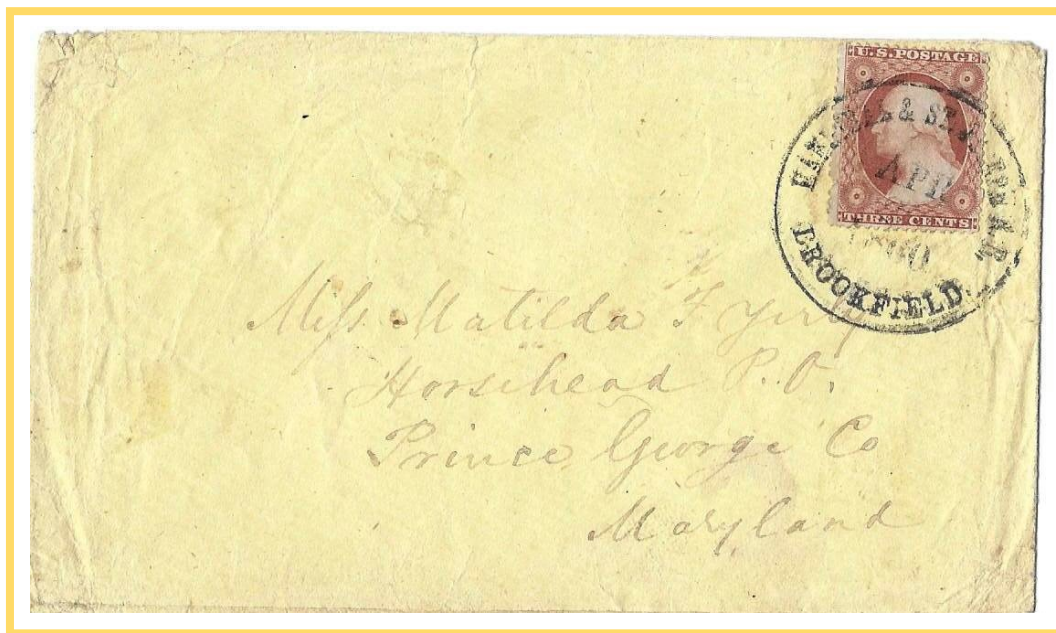 U.S. POSTAGE
THREE CENTS
& ST. R.R.
APR
1860
BROOKFIELD.
Miss Matilda F
Horsehead P.O.
Prince George Co
Maryland